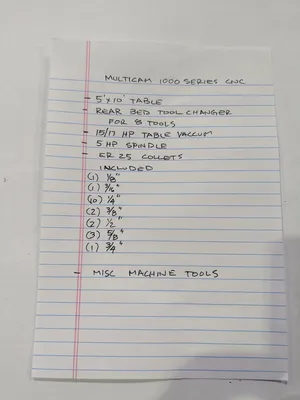 MULTICAM 1000 SERIES CNC
- 5'x10' TABLE
- REAR BED TOOL CHANGER
FOR 8 TOOLS
- 15/17 HP TABLE VACCUM
- 5 HP SPINDLE
- ER 25 COLLETS
INCLUDED
(1) 1/8"
(1) 3/16"
(10) 1/4"
(2) 3/8"
(2) 1/2"
(3) 5/8"
(1) 3/4"
- MISC MACHINE TOOLS